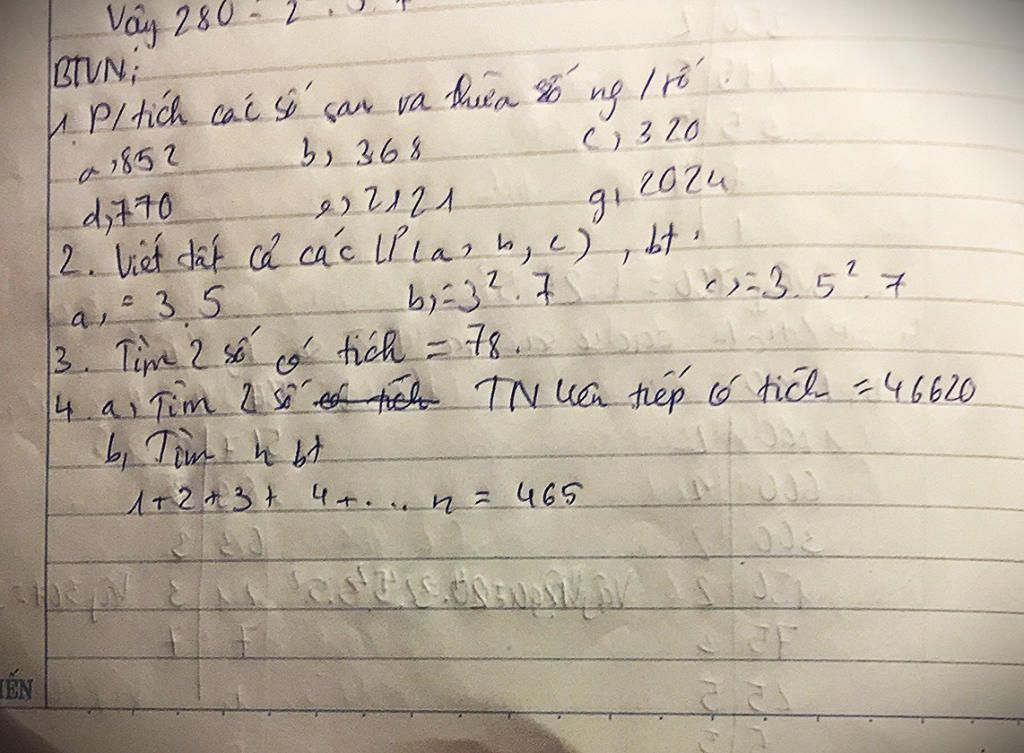 Vậy 280 = 2 . 5 . 7
BTVN:
1 P/tích các số sau va thừa số ng/tố.
a, 852 b, 368 c, 320
d, 770 e, 2121 g, 2024
2. Viết tất cả các Ư(a, b, c), bt.
a, = 3.5 b, = 3². 7 c, = 3. 5². 7
3. Tìm 2 số có tích = 78.
4. a, Tìm 2 số có tích TN liên tiếp có tích = 46620
b, Tìm n bt
1 + 2 + 3 + 4 + ... n = 465
IẾN